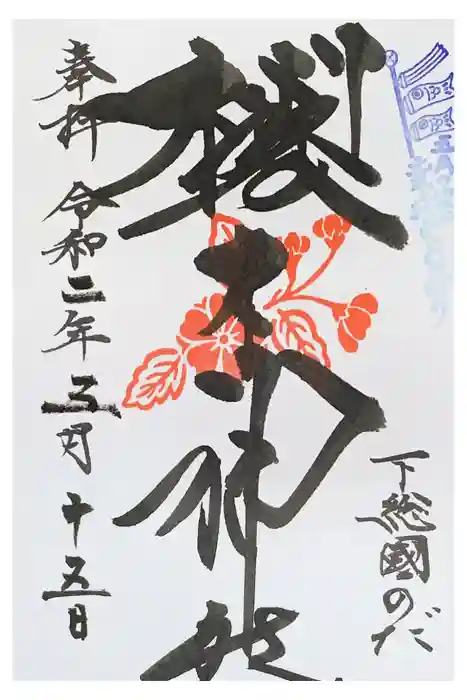 下総國のだ
櫻木神社
奉拝 令和二年五月十五日